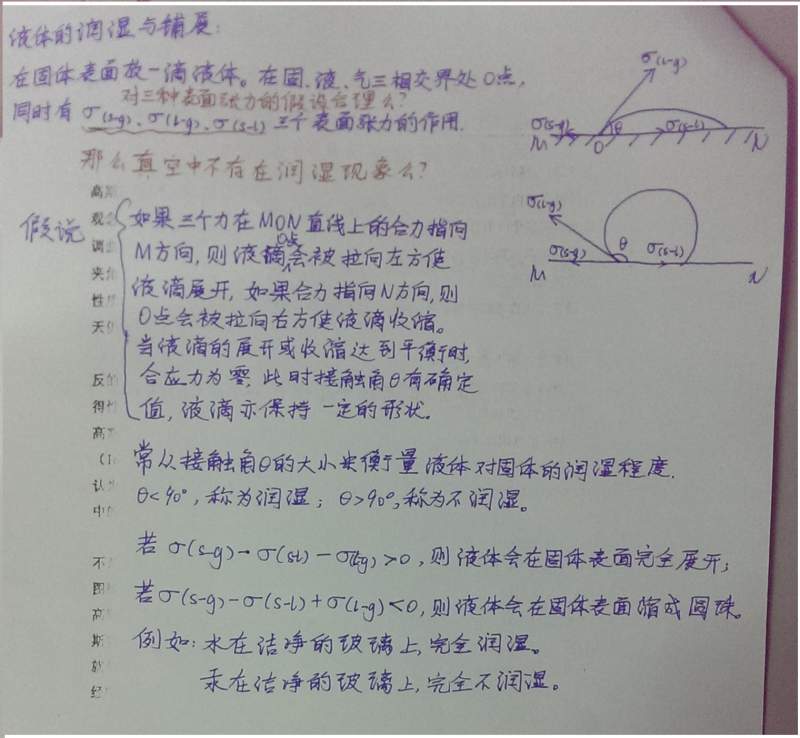 液体的润湿与铺展:
在固体表面放一滴液体。在固、液、气三相交界处O点,
对三种表面张力的假设合理么?
同时有 σ(s-g)、σ(l-g)、σ(s-l) 三个表面张力的作用.
那么真空中不存在润湿现象么?
σ(l-g)
σ(s-g) θ σ(s-l)
M O N
σ(l-g)
θ
σ(s-g) σ(s-l)
M N
假说
如果三个力在MON直线上的合力指向
O点
M方向,则液滴会被拉向左方使
液滴展开,如果合力指向N方向,则
O点会被拉向右方使液滴收缩。
当液滴的展开或收缩达到平衡时,
合应力为零,此时接触角θ有确定
值,液滴亦保持一定的形状.
常从接触角θ的大小来衡量液体对固体的润湿程度.
θ<90°,称为润湿;θ>90°,称为不润湿。
若 σ(s-g)-σ(s-l)-σ(l-g)>0,则液体会在固体表面完全展开;
若σ(s-g)-σ(s-l)+σ(l-g)<0,则液体会在固体表面缩成圆珠。
例如:水在洁净的玻璃上,完全润湿。
汞在洁净的玻璃上,完全不润湿。
高
观
调
夹
性
天
反的
得
高
(
认
中
不
图
高
斯
経